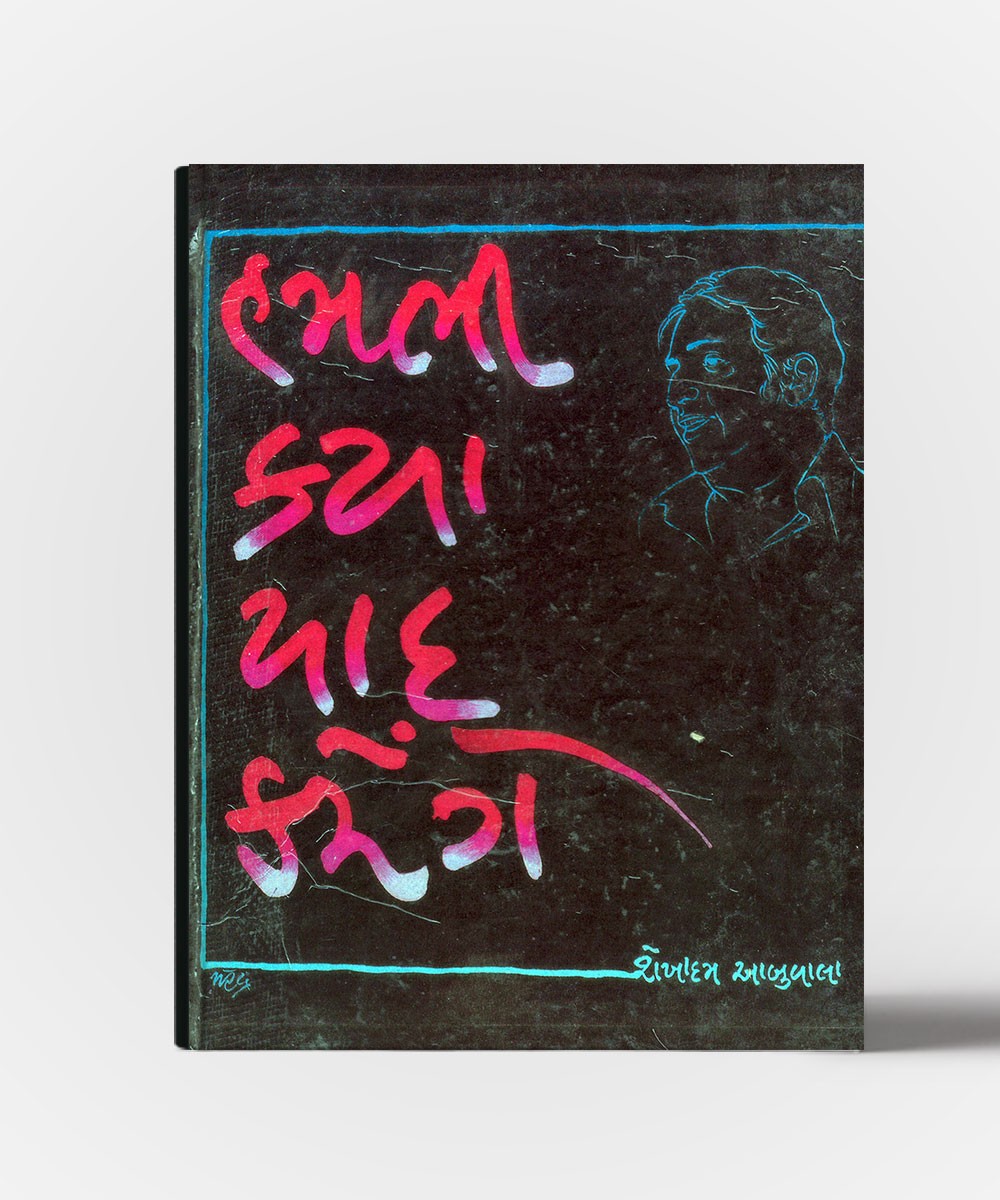 હમભી
કયા
યાદ
કરેંગે
શેખાદમ આબુવાલા